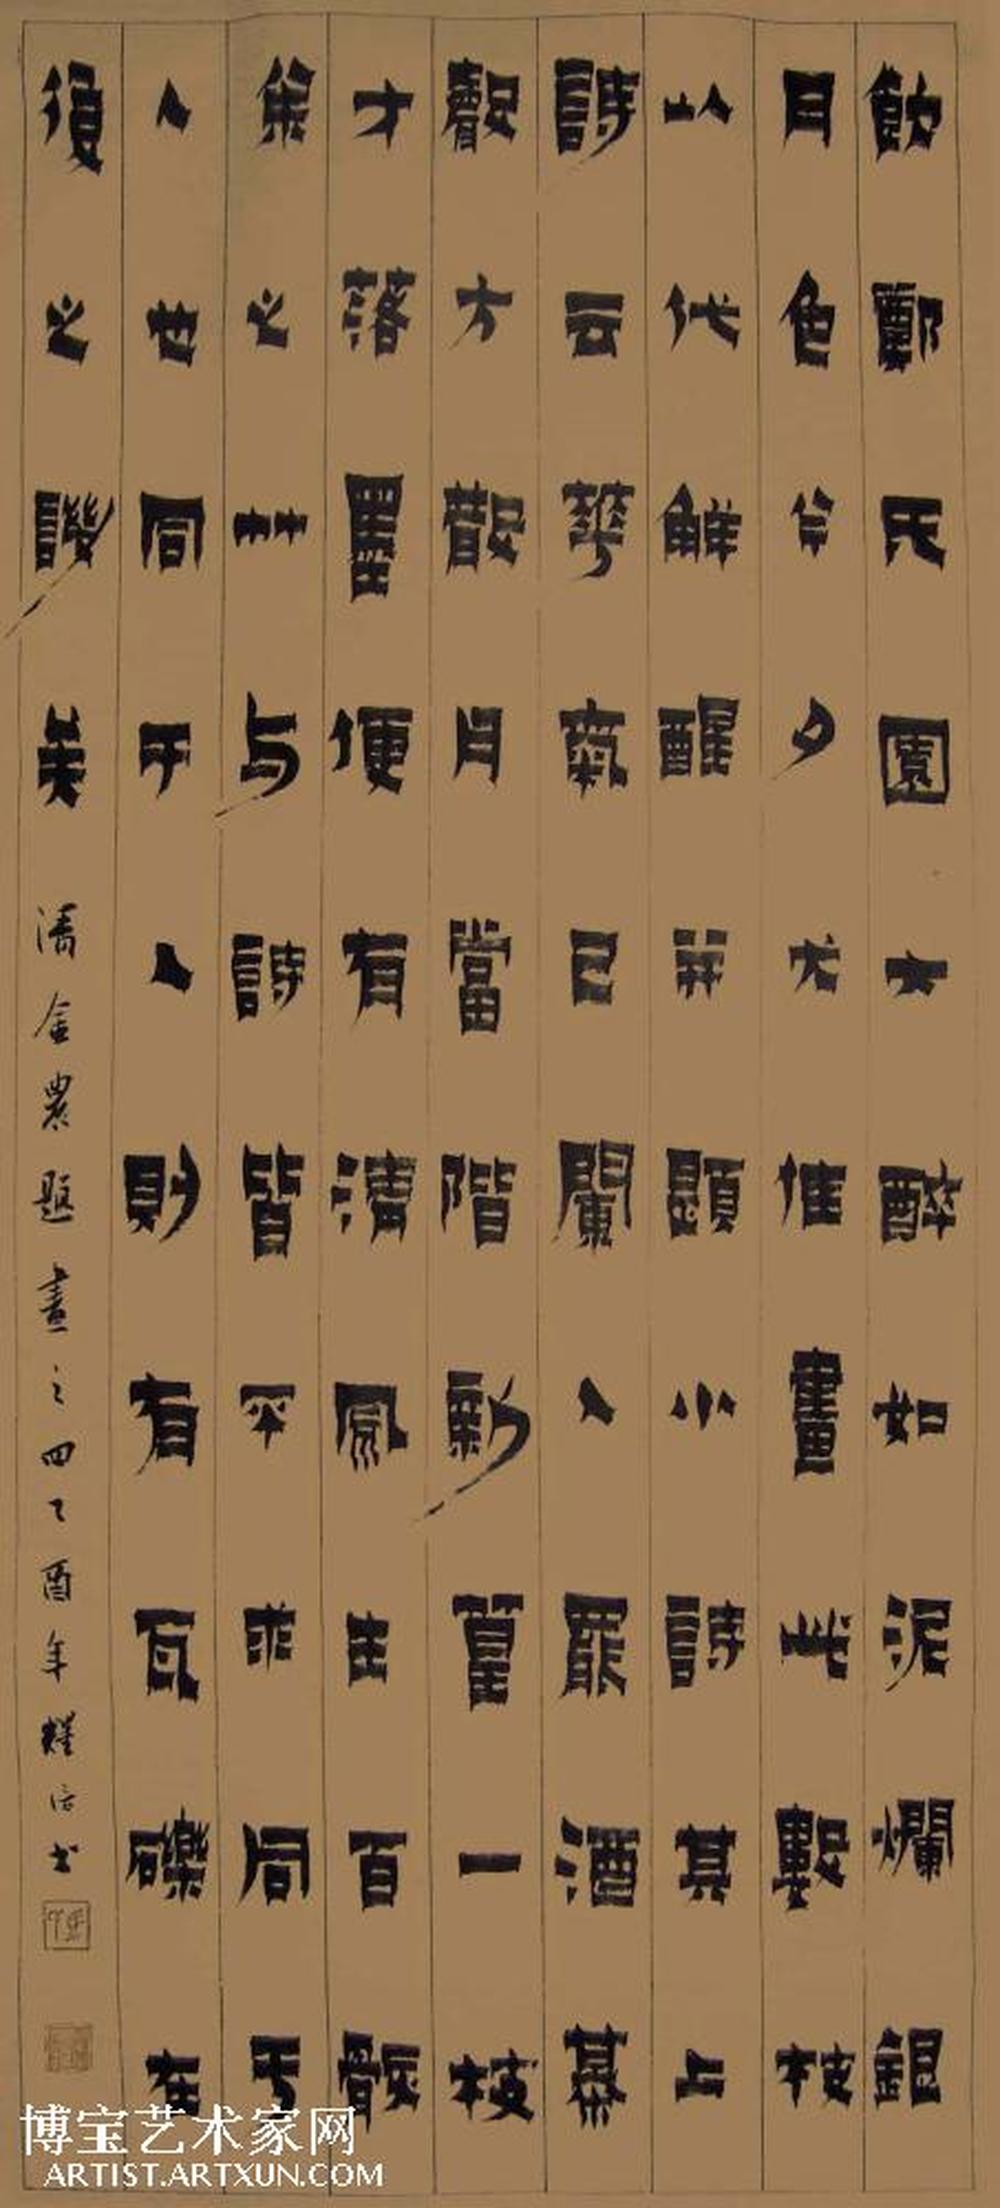 飲鄭氏園大醉如泥爛銀
月色今夕尤佳畫此數枝
以代解醒并題小詩其上
詩云花氣已闌人罷酒幕
聲方歇月當階新篁一枝
才落墨便有清風生百骸
余之竹与詩皆不求同于
人也同于人則有瓦礫在
後之譏矣
清金農題畫之四乙酉年耀信书
博宝艺术家网
ARTIST.ARTXUN.COM